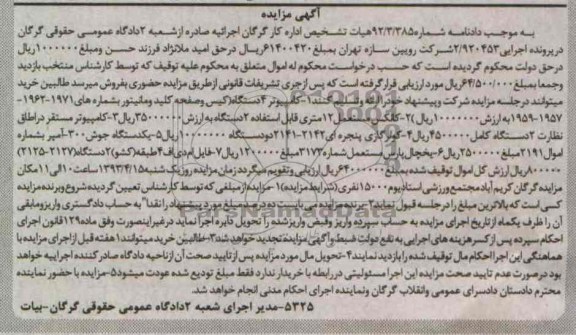 آگهی مزایده
به موجب دادنامه شماره ۹۲/۳/۳۸۵هیات تشخیص اداره کار گرگان اجرائیه صادره از شعبه ۲دادگاه عمومی حقوقی گرگان
درپرونده اجرایی۲/۹۲۰۴۵۳شرکت رویین سازه تهران بمبلغ۶۱۴۰۰۴۲۰ریال در حق امید ملانژاد فرزند حسن ومبلغ۱۰۰۰۰۰۰ریال
در حق دولت محکوم گردیده است که حسب درخواست محکوم له اموال متعلق به محکوم علیه توقیف که توسط کارشناس منتخب بازدید
وجمعا بمبلغ۶۴/۵۰۰/۰۰۰ریال مورد ارزیابی قرار گرفته است که پس از جری تشریفات قانونی از طریق مزایده حضوری بفروش میرسد طالبین خرید
میتوانند در جلسه مزایده شرکت و پیشنهاد خود را ارائه واصلح کنند۱-کامپیوتر ۴دستگاه(کیس وصفحه کلید ومانیتور بشماره های۱۹۷۱-۱۹۶۳-
۱۹۵۷-۱۹۵۹به ارزش۱۰۰۰۰۰۰۰ریال)۲- مستعمل ۱۲متری قابل استفاده ۲دستگاه به ارزش۳۵۰۰۰۰۰۰ریال۳-کامپیوتر مستقر دراطاق
نظارت ۲دستگاه کامل۴۵۰۰۰۰۰ریال۴-کولرگازی پنجره ای۲۱۴۲-۲۱۴۱دودستگاه ۱۰۰۰۰۰۰۰ریال۵-یکدستگاه جوش۳۰۰آمپر بشماره
اموال۲۱۹۱مبلغ۲۵۰۰۰۰۰ریال۶-یخچال پارس مستعمل شماره۳۱۷۳مبلغ۱۲۰۰۰۰۰ریال۷-فایل ام دی اف۴طبقه(کشو)۲دستگاه(۲۱۲۷-۲۱۲۵)
۸۰۰۰۰۰ریال ارزش کل اموال توقیف شده به مبلغ۶۴۰۰۰۰۰۰ریال ارزیابی وتقویم میگردد زمان مزایده روز یک شنبه۱۳۹۳/۴/۱۵ساعت۱۰الی۱۱مکان
مزایده گرگان کریم آباد مجتمع ورزشی استادیوم۱۵۰۰۰نفری(شرایط مزایده)۱-مزایده از مبلغی که توسط کارشناس تعیین گردیده شروع وبرنده مزایده
کسی است که بالاترین مبلغ را در جلسه قبول نماید۲-برنده مزایده می بایست ده درصد مبلغ مورد پیشنهاد را نقدا" به حساب دادگستری واریز ومابقی
آن را ظرف یکماه از تاریخ اجرای مزایده به حساب سپرده واریز وفیش واریز شده را تحویل دایره اجرا نماید در غیر اینصورت وفق ماده۱۲۹قانون اجرای
احکام سپرده پس از کسر هزینه های اجرایی به نفع دولت ضبط وآگهی مزایده تجدید خواهد شد۳-طالبین خرید میتوانند ۱هفته قبل از اجرای مزایده با
هماهنگی این اجرا احکام مال توقیف شده را بازدید نمایند۴-تحویل مال مورد مزایده پس از تایید صحت آن از ناحیه دادگاه صادر کننده اجراییه خواهد
بود در صورت عدم تایید صحت مزایده این اجرا مسئولیتی در رابطه با خریدار ندارد فقط مبلغ تودیع شده عودت میشود۵-مزایده با حضور نماینده
محترم دادستان دادسرای عمومی وانقلاب گرگان ونماینده اجرای احکام مدنی انجام خواهد شد.
۵۳۲۵-مدیر اجرای شعبه ۲دادگاه عمومی حقوقی گرگان-بیات